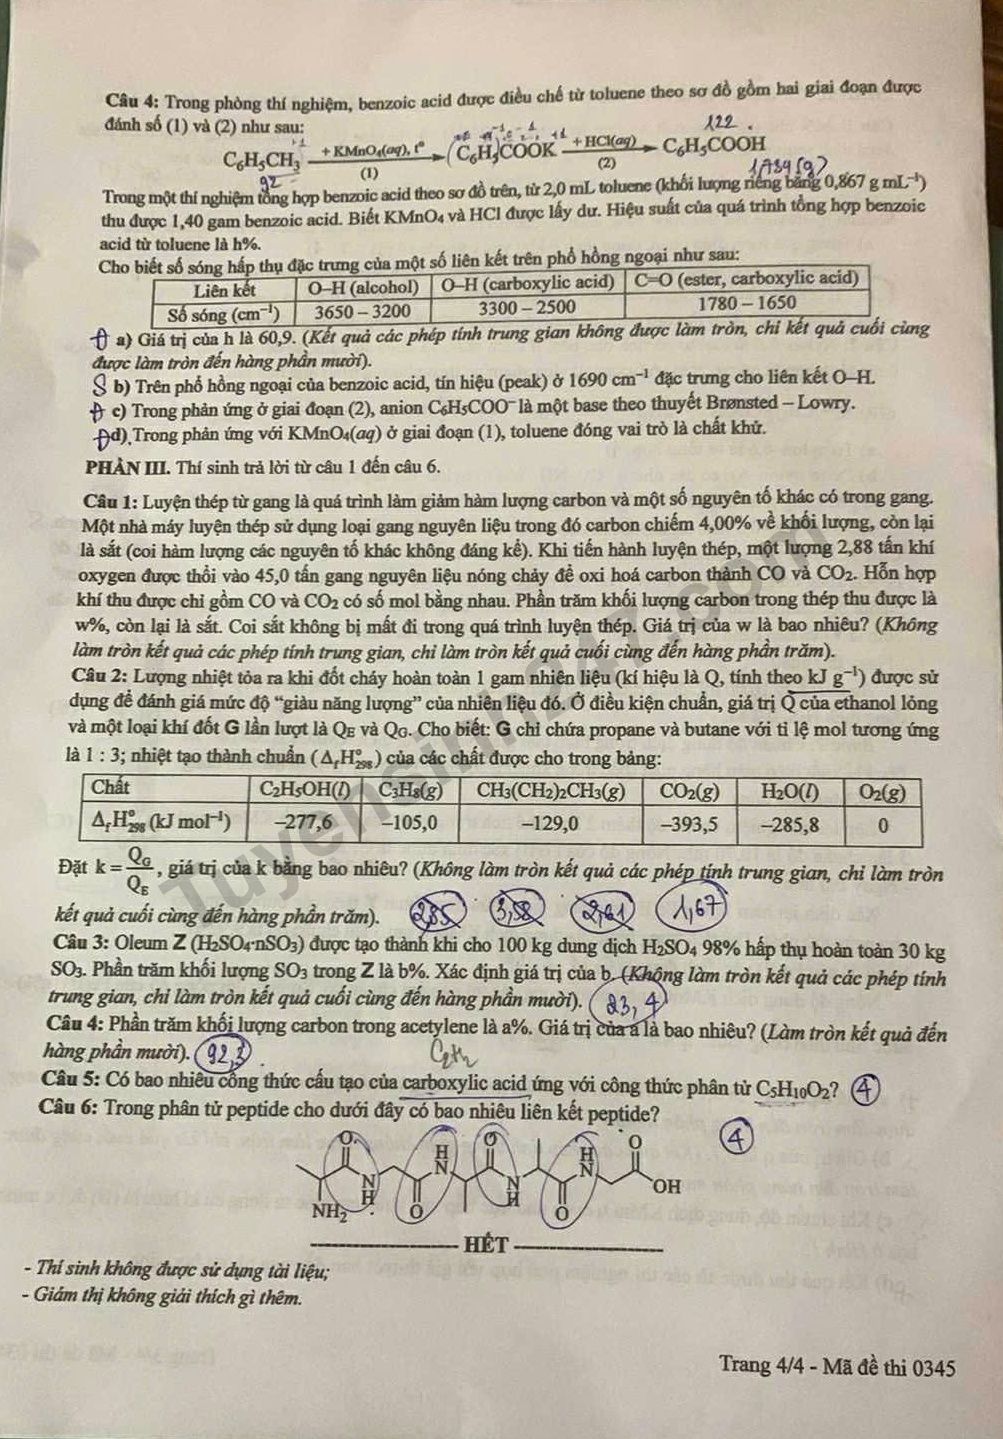 Câu 4: Trong phòng thí nghiệm, benzoic acid được điều chế từ toluene theo sơ đồ gồm hai giai đoạn được
đánh số (1) và (2) như sau:
122
C₆H₅CH₃ + KMnO₄(aq), t° (1) C₆H₅COOK + HCl(aq) (2) C₆H₅COOH
92
Trong một thí nghiệm tổng hợp benzoic acid theo sơ đồ trên, từ 2,0 mL toluene (khối lượng riêng bằng 0,867 g mL⁻¹)
thu được 1,40 gam benzoic acid. Biết KMnO₄ và HCl được lấy dư. Hiệu suất của quá trình tổng hợp benzoic
acid từ toluene là h%.
Cho biết số sóng hấp thụ đặc trưng của một số liên kết trên phổ hồng ngoại như sau:
Liên kết O–H (alcohol) O–H (carboxylic acid) C=O (ester, carboxylic acid)
Số sóng (cm⁻¹) 3650 – 3200 3300 – 2500 1780 – 1650
a) Giá trị của h là 60,9. (Kết quả các phép tính trung gian không được làm tròn, chỉ kết quả cuối cùng
được làm tròn đến hàng phần mười).
S b) Trên phổ hồng ngoại của benzoic acid, tín hiệu (peak) ở 1690 cm⁻¹ đặc trưng cho liên kết O–H.
c) Trong phản ứng ở giai đoạn (2), anion C₆H₅COO⁻ là một base theo thuyết Brønsted – Lowry.
d) Trong phản ứng với KMnO₄(aq) ở giai đoạn (1), toluene đóng vai trò là chất khử.
PHẦN III. Thí sinh trả lời từ câu 1 đến câu 6.
Câu 1: Luyện thép từ gang là quá trình làm giảm hàm lượng carbon và một số nguyên tố khác có trong gang.
Một nhà máy luyện thép sử dụng loại gang nguyên liệu trong đó carbon chiếm 4,00% về khối lượng, còn lại
là sắt (coi hàm lượng các nguyên tố khác không đáng kể). Khi tiến hành luyện thép, một lượng 2,88 tấn khí
oxygen được thổi vào 45,0 tấn gang nguyên liệu nóng chảy để oxi hoá carbon thành CO và CO₂. Hỗn hợp
khí thu được chỉ gồm CO và CO₂ có số mol bằng nhau. Phần trăm khối lượng carbon trong thép thu được là
w%, còn lại là sắt. Coi sắt không bị mất đi trong quá trình luyện thép. Giá trị của w là bao nhiêu? (Không
làm tròn kết quả các phép tính trung gian, chỉ làm tròn kết quả cuối cùng đến hàng phần trăm).
Câu 2: Lượng nhiệt tỏa ra khi đốt cháy hoàn toàn 1 gam nhiên liệu (kí hiệu là Q, tính theo kJ g⁻¹) được sử
dụng để đánh giá mức độ “giàu năng lượng” của nhiên liệu đó. Ở điều kiện chuẩn, giá trị Q của ethanol lỏng
và một loại khí đốt G lần lượt là Q_E và Q_G. Cho biết: G chỉ chứa propane và butane với tỉ lệ mol tương ứng
là 1 : 3; nhiệt tạo thành chuẩn (Δ_fH°₂₉₈) của các chất được cho trong bảng:
Chất C₂H₅OH(l) C₃H₈(g) CH₃(CH₂)₂CH₃(g) CO₂(g) H₂O(l) O₂(g)
Δ_fH°₂₉₈ (kJ mol⁻¹) –277,6 –105,0 –129,0 –393,5 –285,8 0
Đặt k = Q_G/Q_E, giá trị của k bằng bao nhiêu? (Không làm tròn kết quả các phép tính trung gian, chỉ làm tròn
kết quả cuối cùng đến hàng phần trăm). 1,67
Câu 3: Oleum Z (H₂SO₄·nSO₃) được tạo thành khi cho 100 kg dung dịch H₂SO₄ 98% hấp thụ hoàn toàn 30 kg
SO₃. Phần trăm khối lượng SO₃ trong Z là b%. Xác định giá trị của b. (Không làm tròn kết quả các phép tính
trung gian, chỉ làm tròn kết quả cuối cùng đến hàng phần mười). 23,4
Câu 4: Phần trăm khối lượng carbon trong acetylene là a%. Giá trị của a là bao nhiêu? (Làm tròn kết quả đến
hàng phần mười). 92,3 C₂H₂
Câu 5: Có bao nhiêu công thức cấu tạo của carboxylic acid ứng với công thức phân tử C₅H₁₀O₂? 4
Câu 6: Trong phân tử peptide cho dưới đây có bao nhiêu liên kết peptide?
4
O H N O H N O
NH₂ N H O N H O OH
HẾT
- Thí sinh không được sử dụng tài liệu;
- Giám thị không giải thích gì thêm.
Trang 4/4 - Mã đề thi 0345
Tuyensinh247.com